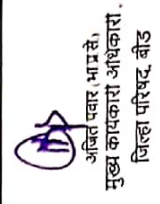 अजित पवार (भा.प्र.से.)
मुख्य कार्यकारी अधिकारी.
जिल्हा परिषद, बीड